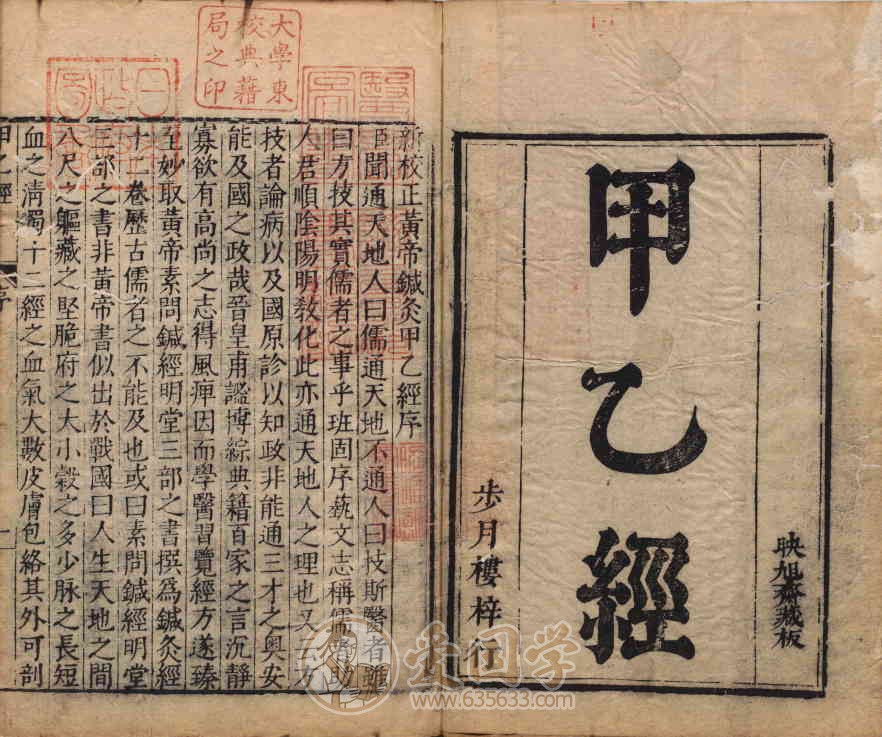 映旭齋藏板
甲乙經
步月樓梓行
新校正黃帝鍼灸甲乙經序
臣聞通天地人曰儒通天地不通人曰技斯醫者雖
曰方技其實儒者之事乎班固序藝文志稱儒者助
人君順陰陽明教化此亦通天地人之理也又云方
技者論病以及國原診以知政非能通三才之奧安
能及國之政哉晉皇甫謐博綜典籍百家之言沉靜
寡欲有高尚之志得風痺因而學醫習覽經方遂臻
至妙取黃帝素問鍼經明堂三部之書撰爲鍼灸經
十二卷歷古儒者之不能及也或曰素問鍼經明堂
三部之書非黃帝書似出於戰國曰人生天地之間
八尺之軀藏之堅脆府之大小穀之多少脉之長短
血之清濁十二經之血氣大數皮膚包絡其外可剖
甲乙經 序 一
大學東
校典藉
局之印
爱国学
www.635633.com